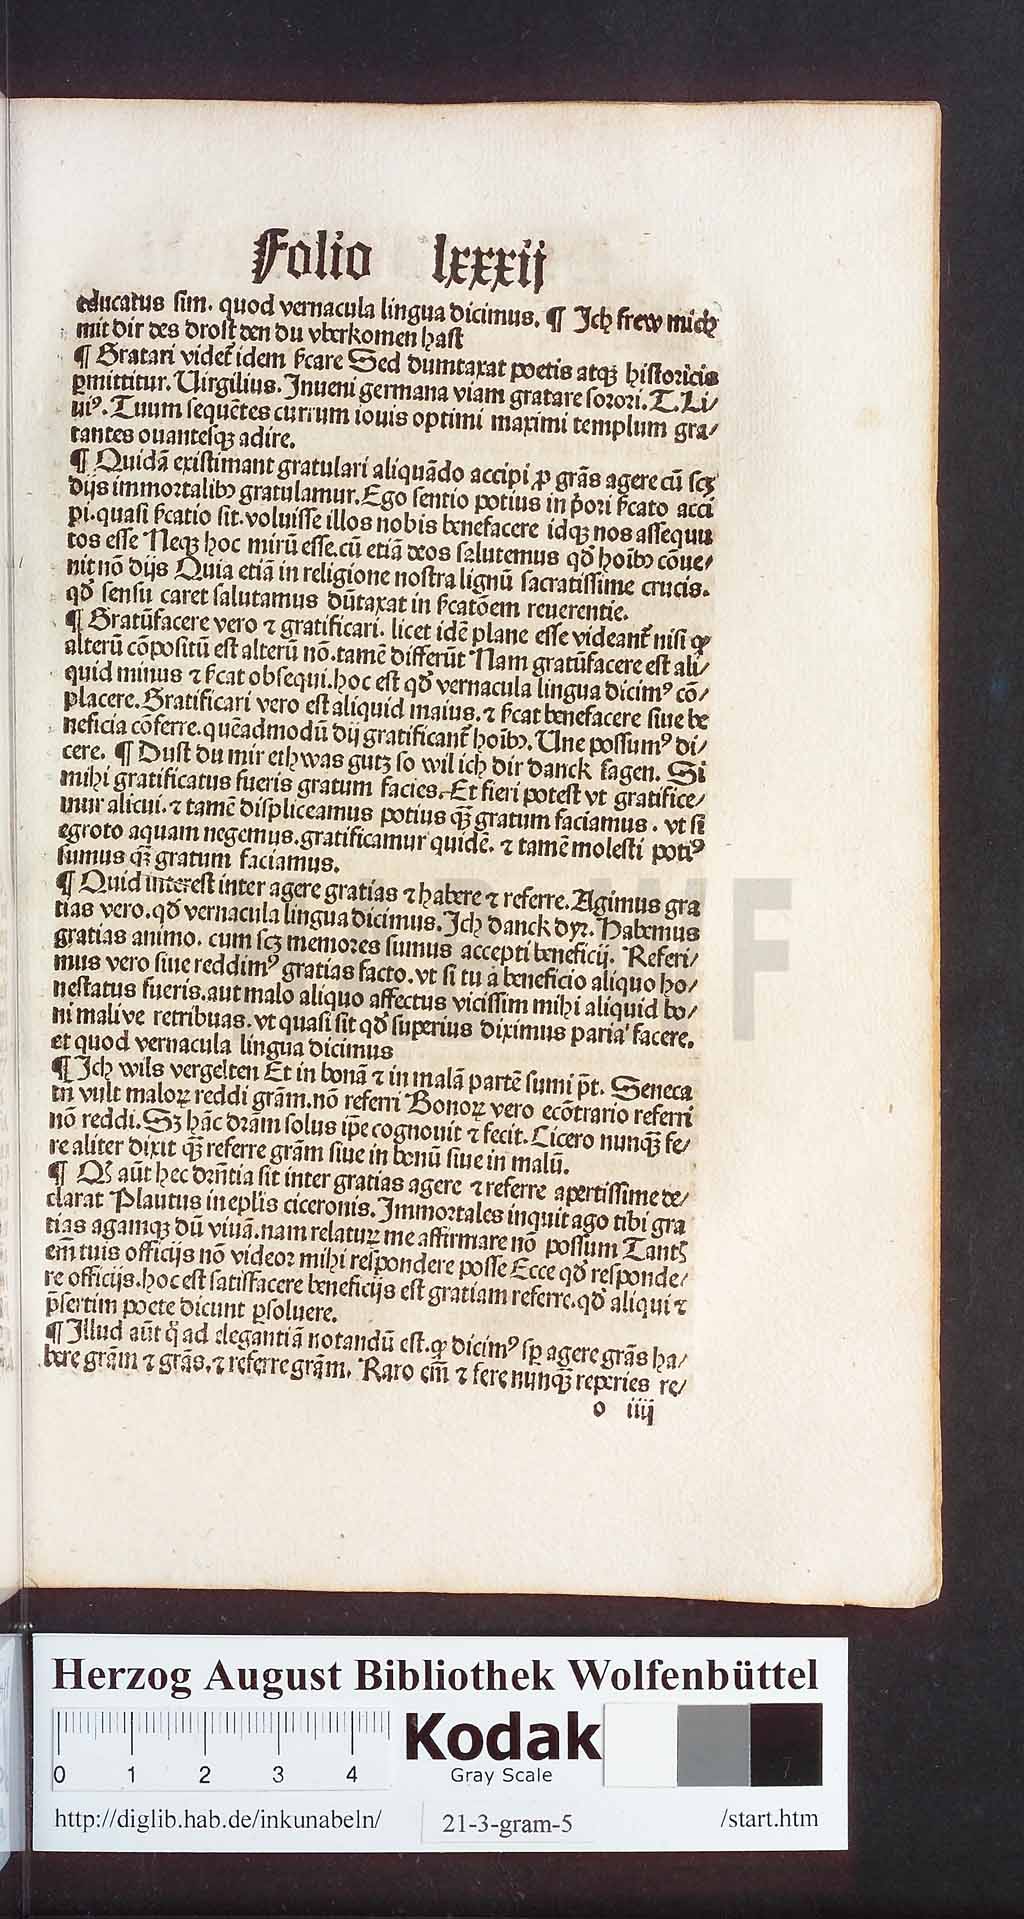 Folio lxxxij
educatus sim. quod vernacula lingua dicimus. ¶ Ich frew mich
mit dir des drost den du vberkomen hast
¶ Gratari videt᷑ idem ſ̄care Sed dumtaxat poetis atqꝫ historicis
ꝑmittitur. Uirgilius. Inueni germana viam gratare sorori. T. Li/
uiꝰ. Tuum sequētes currum iouis optimi maximi templum gra/
tantes ouantesqꝫ adire.
¶ Quidā existimant gratulari aliquādo accipi ꝓ grās agere cū scꝫ
dijs immortalibꝫ gratulamur. Ego sentio potius in p̄ori ſ̄cato acci
pi. quasi ſ̄catio sit. voluisse illos nobis benefacere idqꝫ nos assequu
tos esse Neqꝫ hoc mirū esse. cū etiā deos salutemus qd̓ hoībꝫ cōue/
nit nō dijs Quia etiā in religione nostra lignū sacratissime crucis.
qd̓ sensu caret salutamus dūtaxat in ſ̄catōem reuerentie.
¶ Gratūfacere vero ⁊ gratificari. licet idē plane esse videant᷑ nisi ꝙ
alterū cōpositū est alterū nō. tamē differūt Nam gratūfacere est ali/
quid minus ⁊ ſ̄cat obsequi. hoc est qd̓ vernacula lingua dicimꝰ cō/
placere. Gratificari vero est aliquid maius. ⁊ ſ̄cat benefacere siue be
neficia cōferre. quēadmodū dij gratificant᷑ hoībꝫ. Une possumꝰ di/
cere. ¶ Dust du mir ethwas gutz so wil ich dir danck sagen. Si
mihi gratificatus fueris gratum facies. Et fieri potest vt gratifice/
mur alicui. ⁊ tamē displiceamus potius qꝫ̄ gratum faciamus. vt si
egroto aquam negemus. gratificamur quidē. ⁊ tamē molesti potiꝰ
sumus qꝫ̄ gratum faciamus.
¶ Quid interest inter agere gratias ⁊ habere ⁊ referre. Agimus gra
tias vero. qd̓ vernacula lingua dicimus. Ich danck dyr. Habemus
gratias animo. cum scꝫ memores sumus accepti beneficij. Referi/
mus vero siue reddimꝰ gratias facto. vt si tu a beneficio aliquo ho/
nestatus fueris. aut malo aliquo affectus vicissim mihi aliquid bo/
ni malive retribuas. vt quasi sit qd̓ superius diximus paria facere.
et quod vernacula lingua dicimus
¶ Ich wils vergelten Et in bonā ⁊ in malā partē sumi p̄t. Seneca
tn̄ vult maloꝝ reddi grām. nō referri Bonoꝝ vero ecōtrario referri
nō reddi. Sꝫ hāc dr̄am solus ip̄e cognouit ⁊ fecit. Cicero nunqꝫ̄ fe/
re aliter dixit qꝫ̄ referre grām siue in bonū siue in malū.
¶ Qd̓ aūt hec dr̄ntia sit inter gratias agere ⁊ referre apertissime de/
clarat Plautus in eplis ciceronis. Immortales inquit ago tibi gra
tias agamqꝫ dū viuā. nam relaturꝝ me affirmare nō possum Tantꝭ
em̄ tuis officijs nō videor mihi respondere posse Ecce qd̓ responde/
re officijs. hoc est satisfacere beneficijs est gratiam referre. qd̓ aliqui ⁊
p̄sertim poete dicunt ꝑsoluere.
¶ Illud aūt q̄ ad elegantiā notandū est. ꝙ dicimꝰ sꝑ agere grās ha/
bere grām ⁊ grās. ⁊ referre grām. Raro em̄ ⁊ fere nunqꝫ̄ reperies re/
o iiij
HAB WF
Herzog August Bibliothek Wolfenbüttel
0 1 2 3 4
Kodak
Gray Scale
http://diglib.hab.de/inkunabeln/ 21-3-gram-5 /start.htm